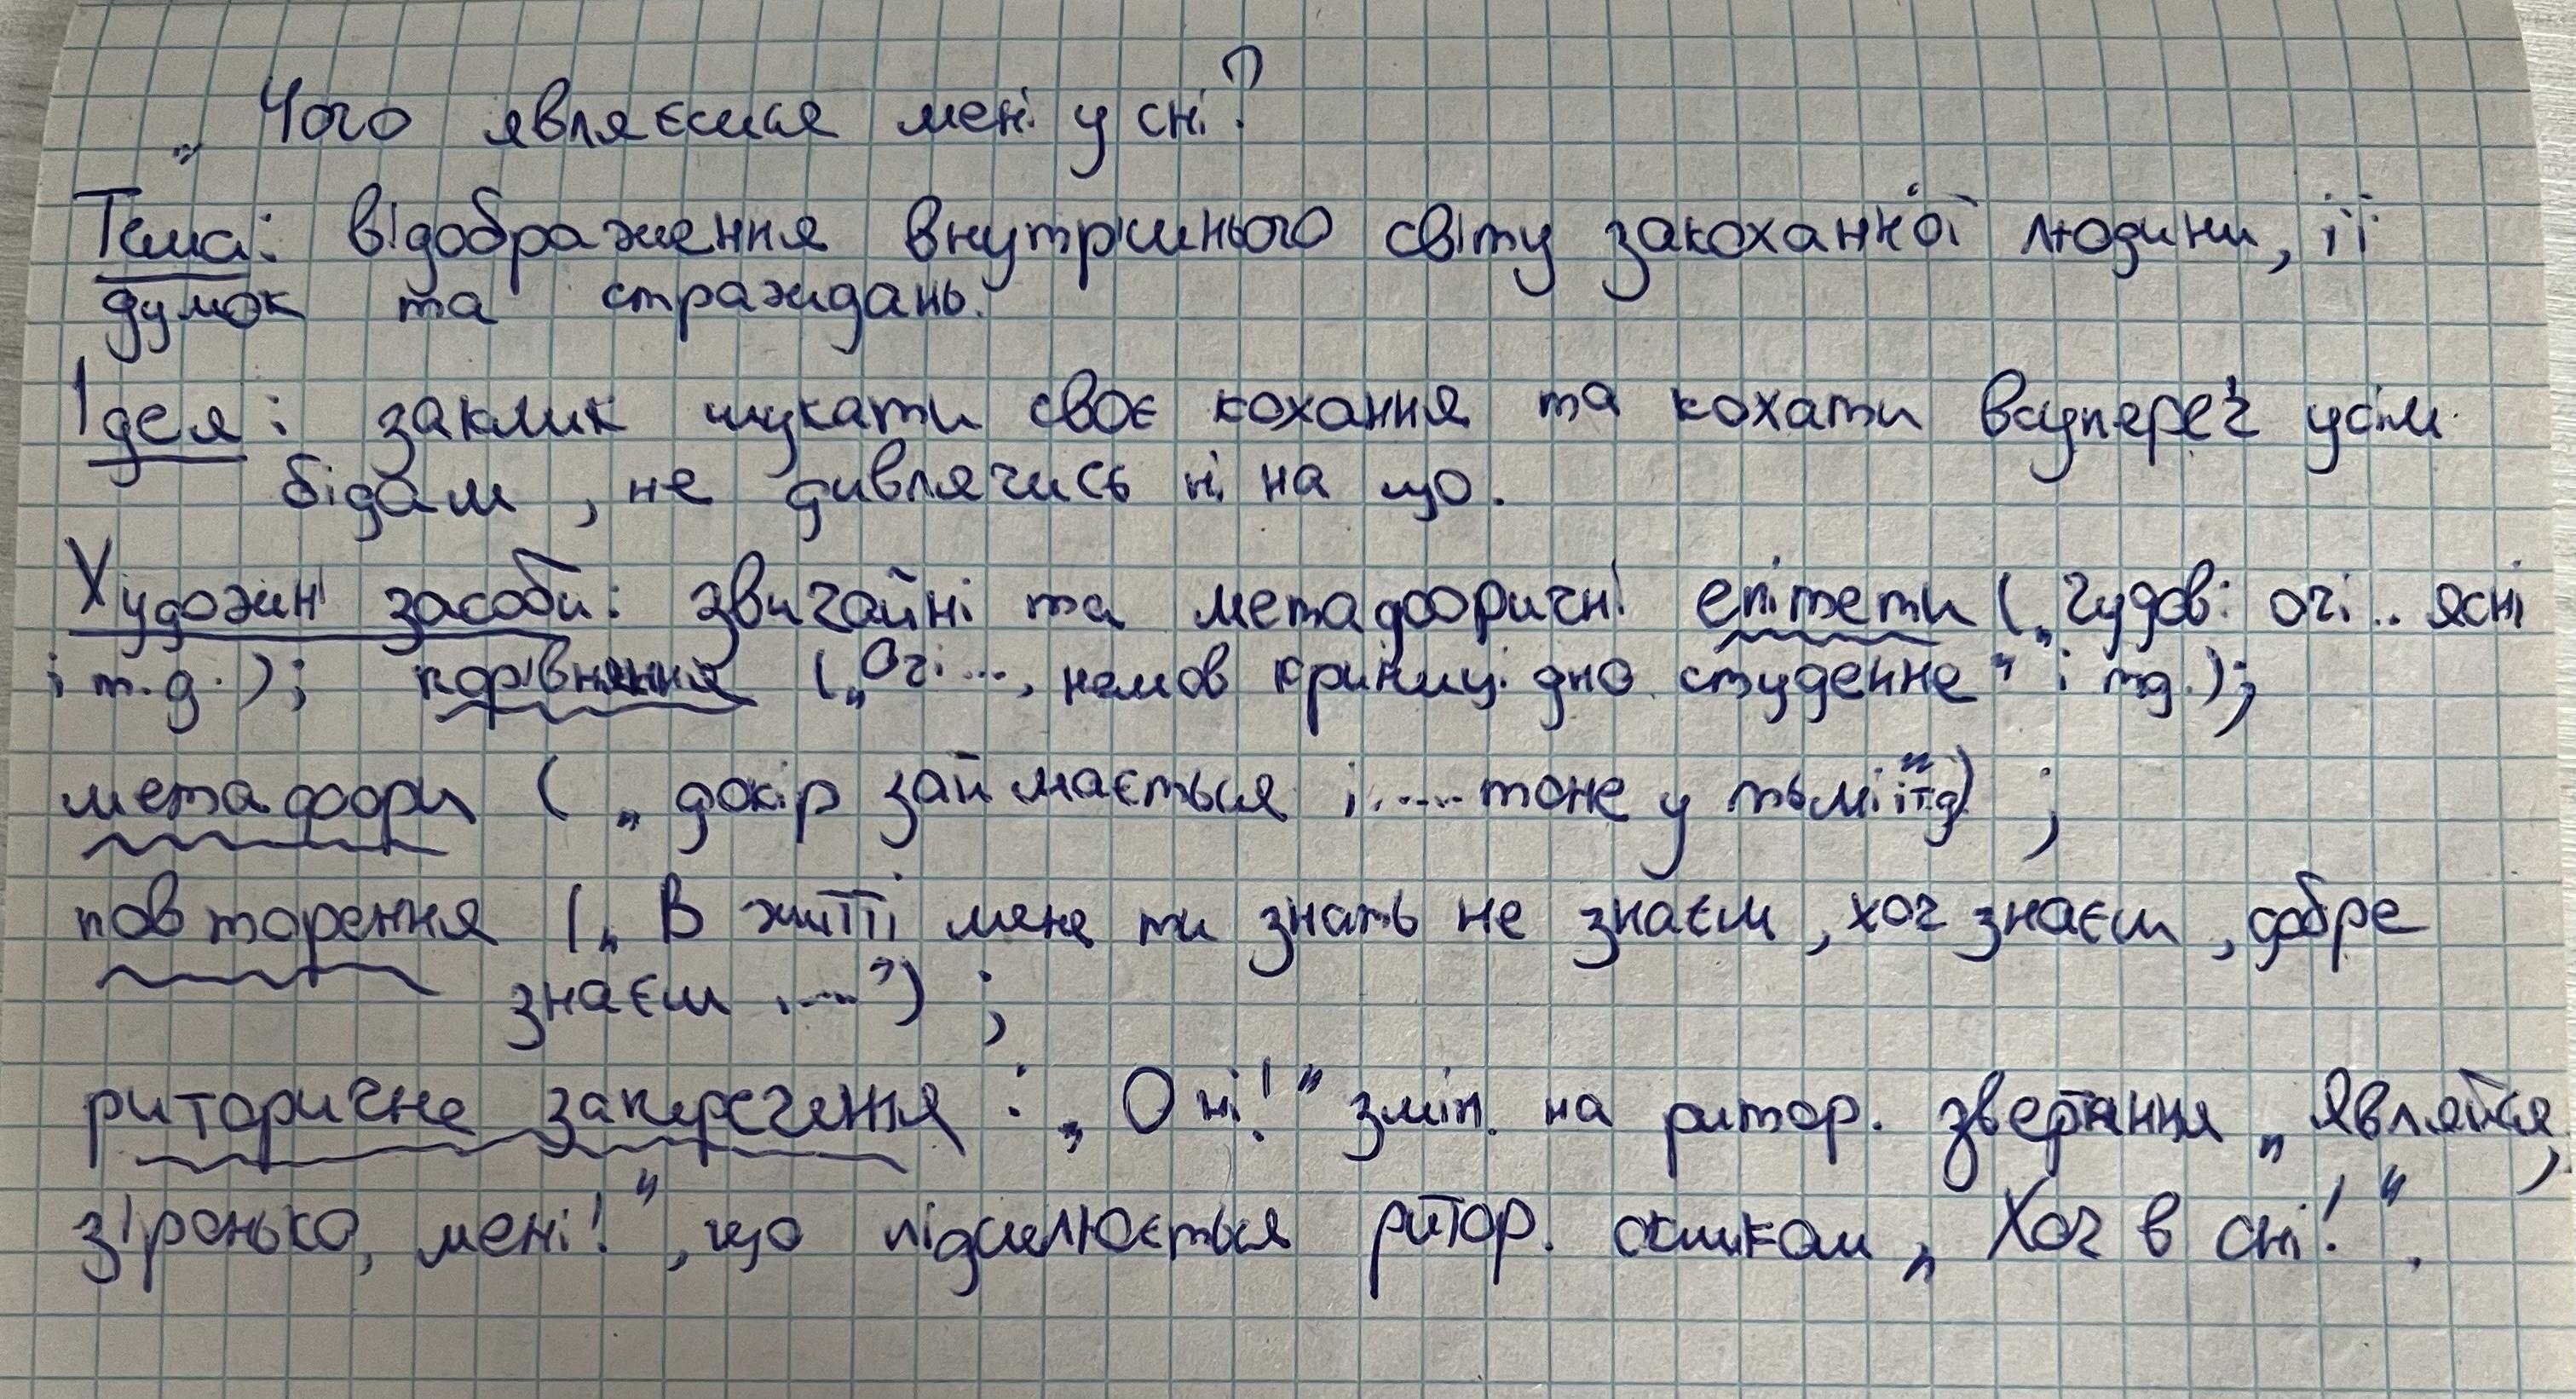 „Чого являєшся мені у сні?
Тема: відображення внутрішнього світу закоханної людини, її
думок та страждань.
Ідея: заклик шукати своє кохання та кохати всупереч усім
бідам, не дивлячись ні на що.
Художні засоби: звичайні та метафоричні епітети („Чудові очі.. ясні
і т.д.); порівняння („Очі..., немов криниці дно студенне" і т.д.);
метафори („докір займається і..... тоне у тьмі" і т.д) ;
повторення („В житті мене ти знать не знаєш, хоч знаєш, добре
знаєш ....") ;
риторичне заперечення : „О ні!" змін. на ритор. звертання „Являйся,
зіронько, мені!", що підсилюється ритор. окликом „Хоч в сні!".